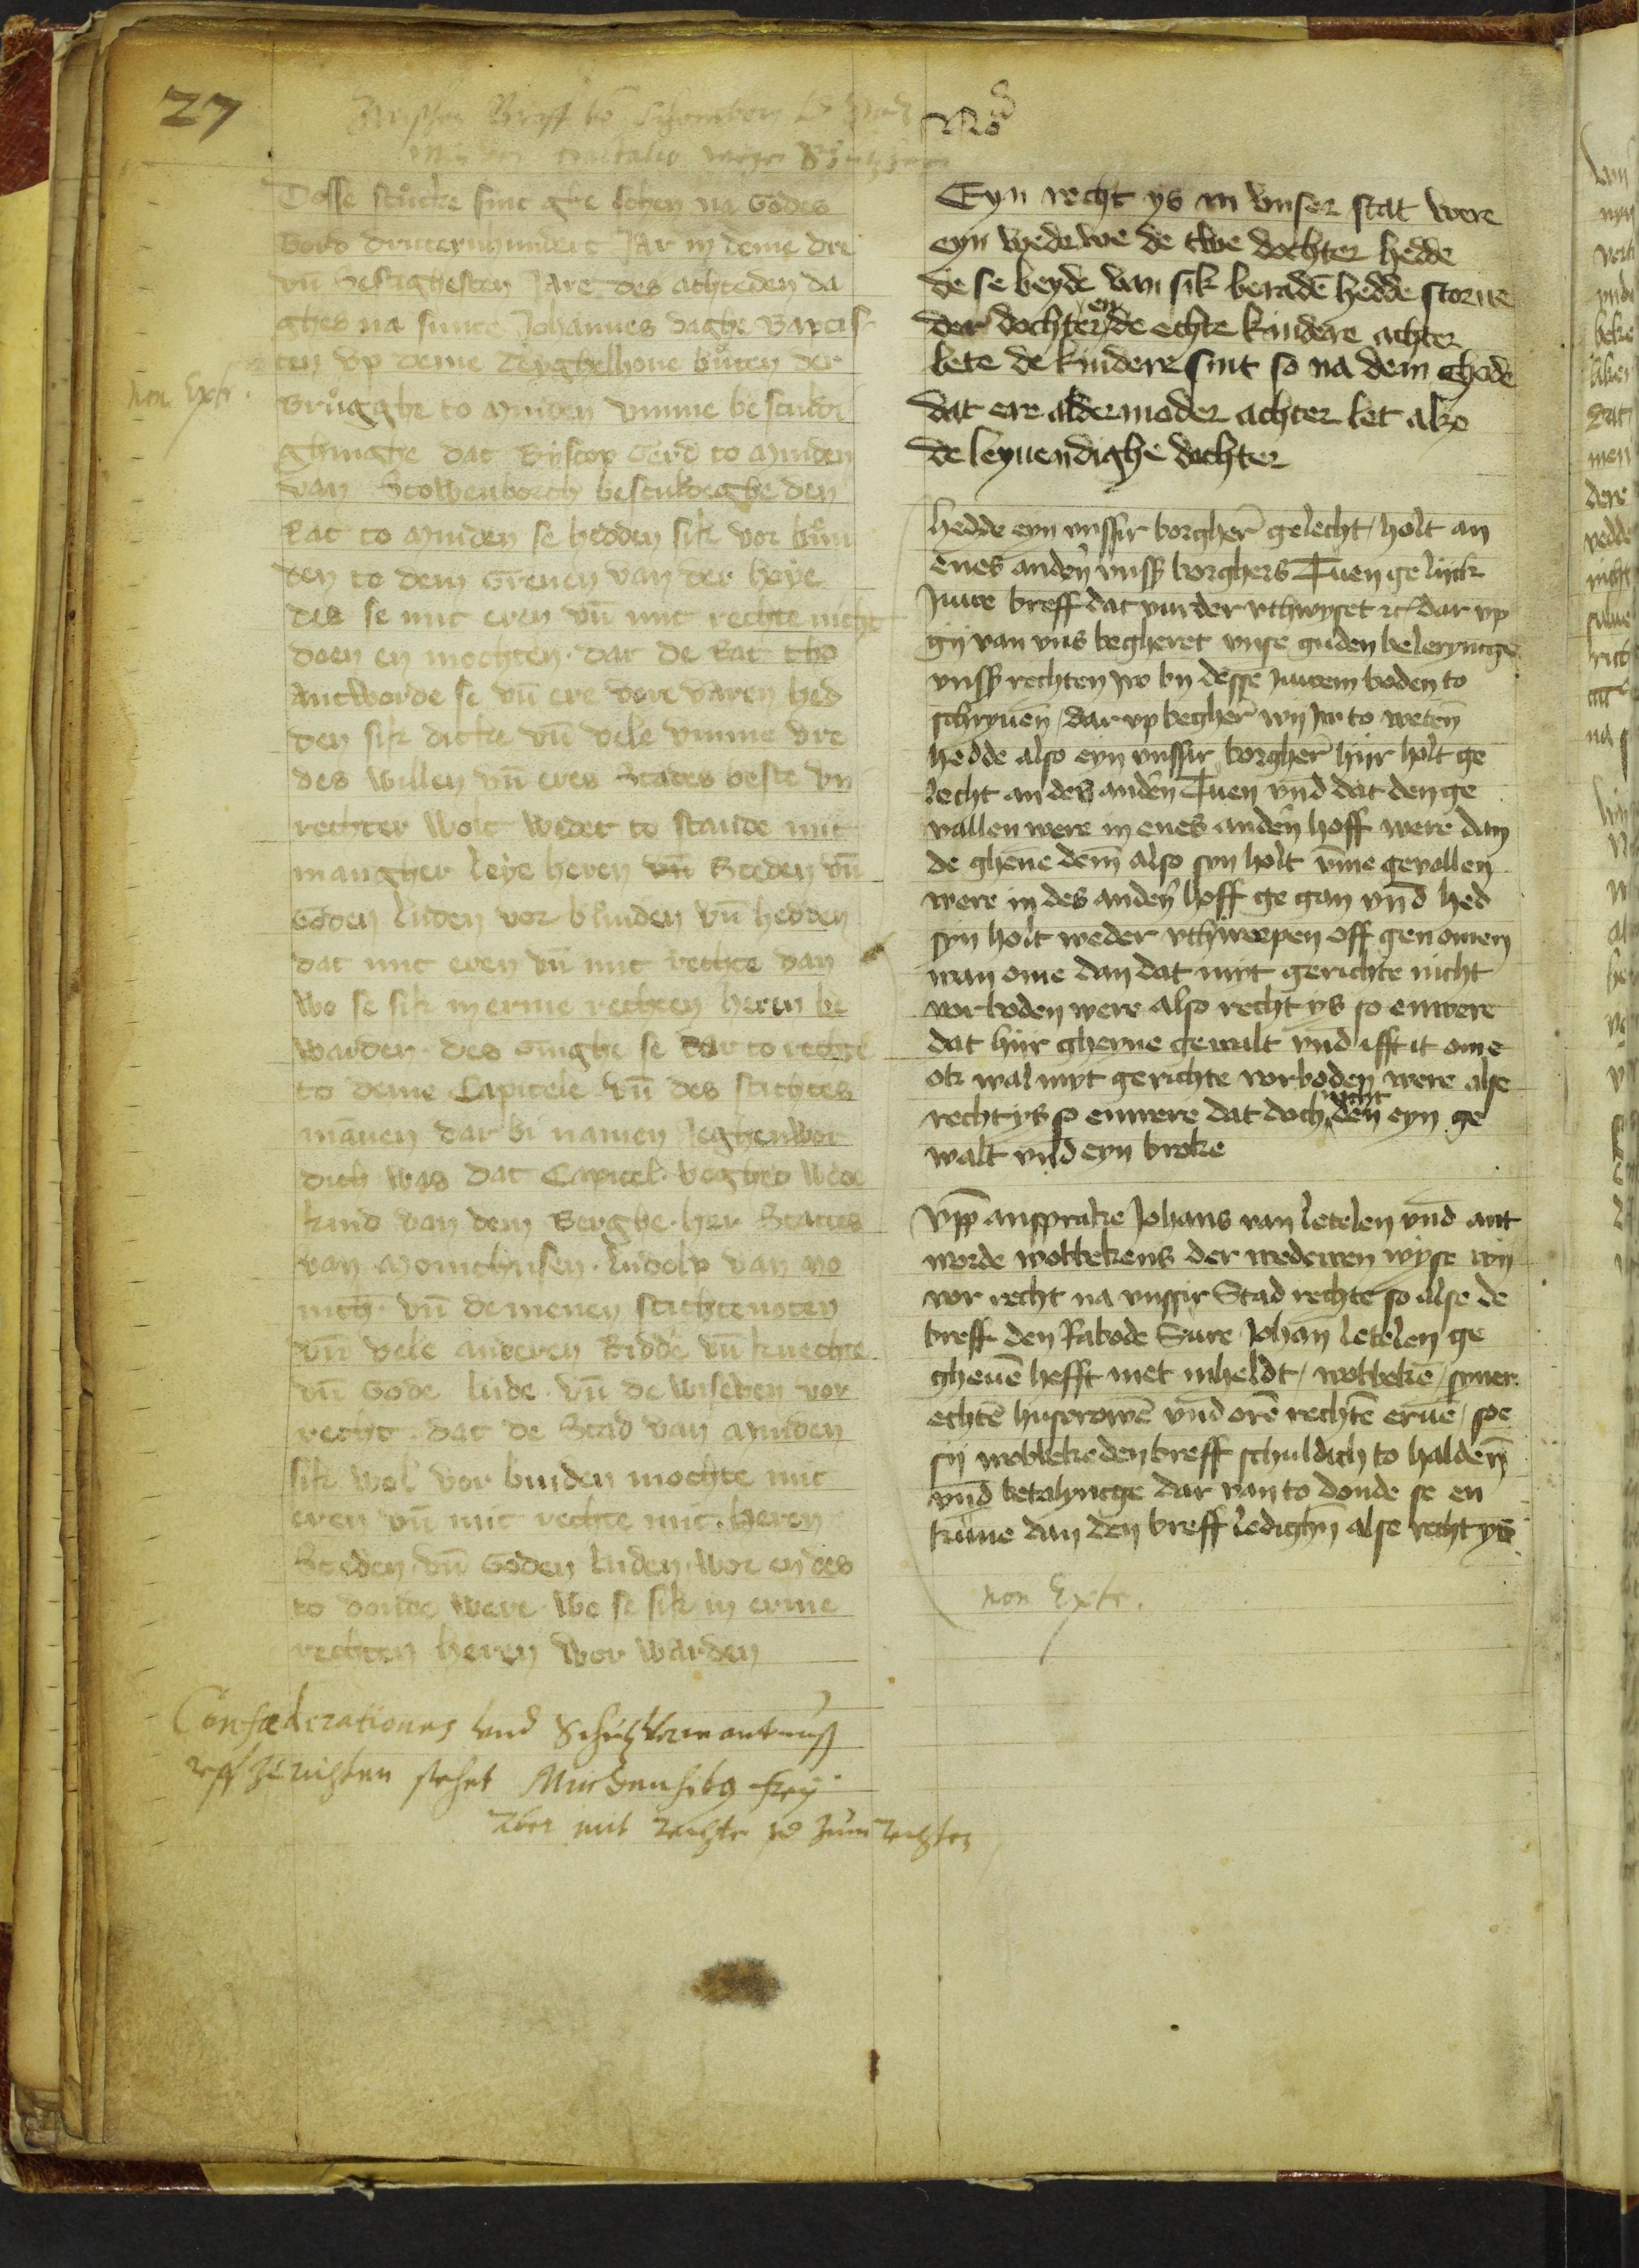 27
Desse stucke sint ghe schen na Godes
Bord drutteynhundert Jar in deme dre
vn̄ sestighesten Jare des achteden da
ghes na sunte Johannes daghe Baptis
ten vp deme Teyghelhoue buten der
non Extr.
Brugghe to Minden vmme besculdi
ghinghe dat Byscop Gerd to Minden
van Scowenborch besculdeghe den
Rat to Minden se hedden sik vor bun
den to dem Greuen van der hoye
des se mit eren vn̄ mit rechte nicht
doen en mochten. dar de Rat tho
Antworde se vn̄ ere vore varen hed
den sik dicke vn̄ vele vmme vre
des willen vn̄ eres States beste vn̄
rechter wolt weder to stande mit
mangher leye heren vn̄ Steden vn̄
Goden luden vor bunden vn̄ hedden
dat mit eren vn̄ mit rechte dan
wo se sik in erme rechten heren be
warden. des Ginghe se Rat to rechte
to deme Capitele vn̄ des stichtes
mannen dar bi namen Jeghenwor
dich was dat Capitel. veghed wede
kind van dem Berghe. her Statius
van Monichusen. Ludolp van Mo
nich. vn̄ de menen stichtenoten
vn̄ vele anderen Ridde vn̄ knechte
vn̄ Gode lude. vn̄ de wiseden vor
recht. dat de Stad van Minden
sik wol vor binden mochte mit
eren vn̄ mit rechte mit heren
Steden vn̄ Goden luden. wor en des
to donde were. wo se sik in erme
rechten heren wor warden
Confœderationes vnd Schutzverwantnuß
vff zurichten stehet Mindensibg frey
Aber mit rechte vnd zum rechten
Eyn recht ys in vnser stat were
eyn wedewe de twe dochter hedde
de se beyde van sik beradē hedde storue
der dochter en de echte kindere achter
lete de kindere sint so na dem Ghode
dat ere aldermoder achter let also
de leyuendighe dochter
hedde eyn vnssir borgher gelecht / holt an
enes anderñ vnsß borghers Tuen ge lijck
Juwe breff dat vurder vthwyset ꝛc dar vp
gij van vns begheret vnse guden beleryncge
vnsß rechten Jw by desse Juwem boden to
schryuen / dar vp begherē wy Jw to weteñ
hedde also eyn vnssir borgher hijr holt ge
lecht an des anderñ Tuen vnd dat den ge
vallen were in enes anderñ hoff were dan
de ghene dem also syn holt vm̄e gevallen
were in des anderñ hoff ge gan vnd hed
syn holt weder vthwerpen off genomen
wan ome dan dat myt gerichte nicht
vorboden were also recht ys so enwere
dat hijr gheyne gewalt vnd ifft it ome
ok wal myt gerichte vorboden were alse
recht ys so enwere dat doch nicht den eyn ge
walt vnd eyn broke
Vpp ansprake Johans van letelen vnd ant
worde wobbekens der wedewen wyse wy
vor recht na vnssir Stad rechte so alse de
breff den Rabode Sure Johan letelen ge
gheuē hefft met inheldt / wobbekē / syner
echtē husvrowē vnd orē rechtē eruē / soe
sij wobbeke den breff schuldich to haldeñ
vnd betalyncge dar van to donde se en
kūne dan den breff ledighñ alse recht ys
non Extr.